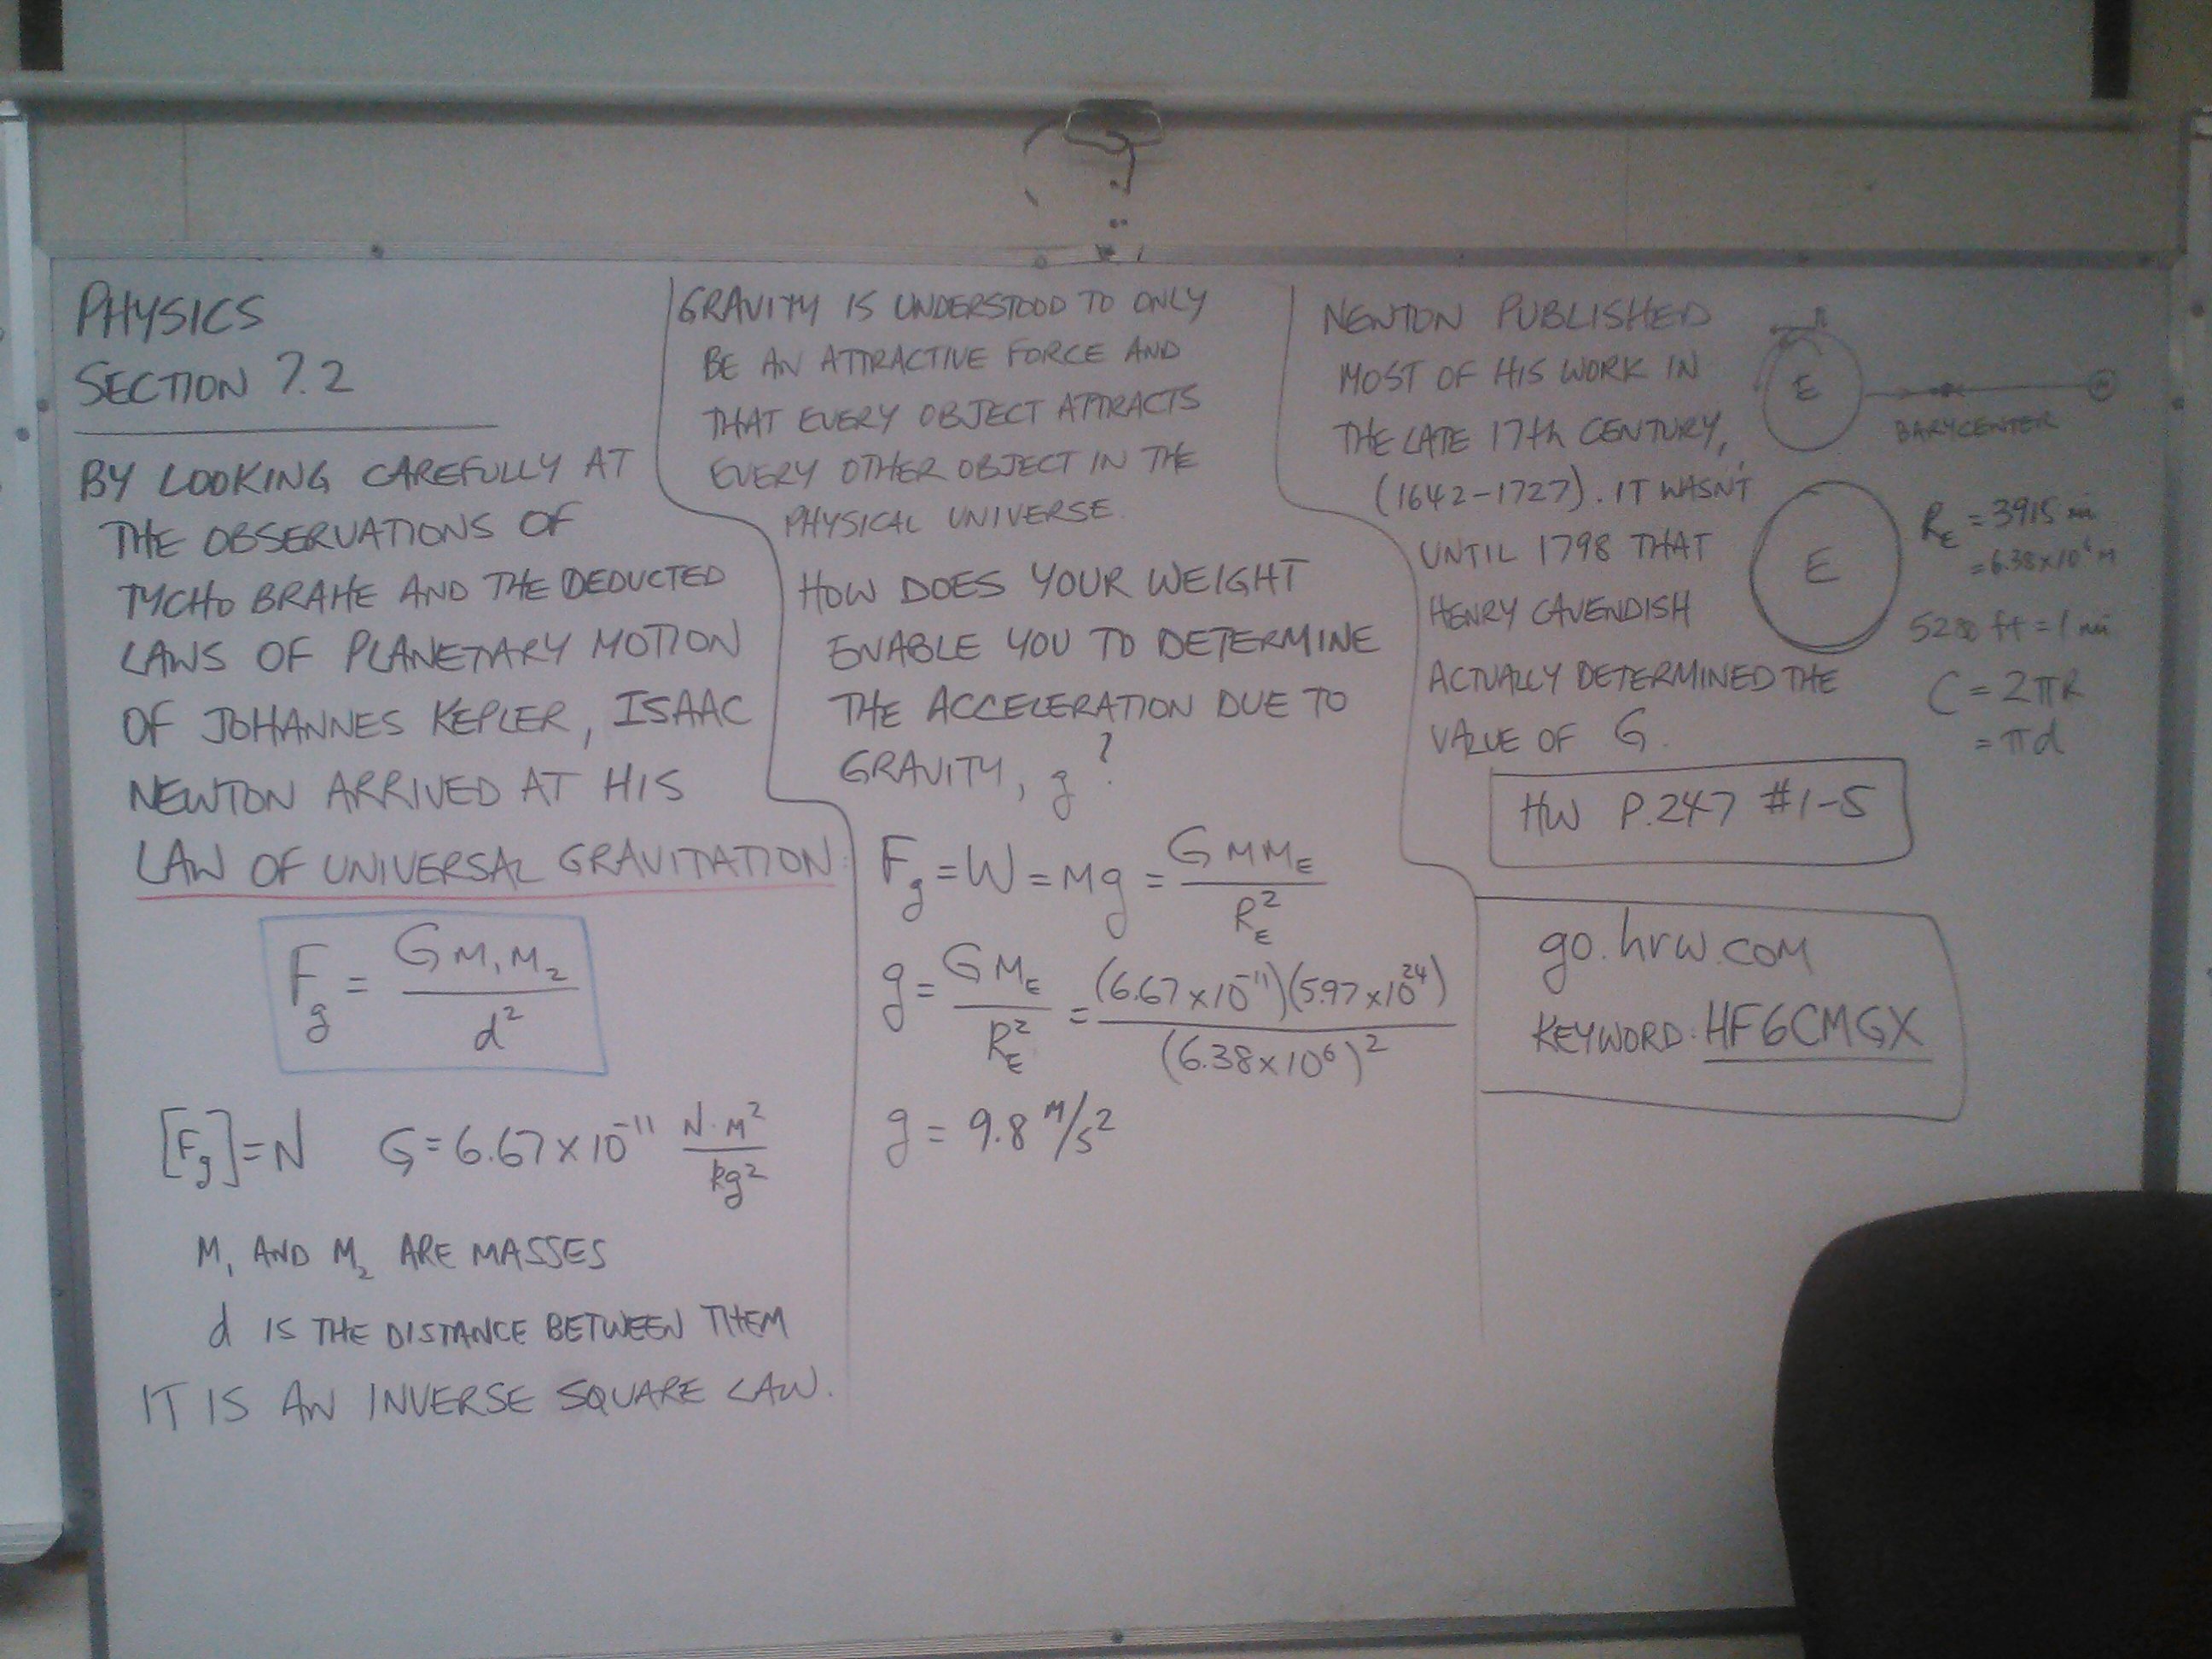 PHYSICS
SECTION 7.2
BY LOOKING CAREFULLY AT
THE OBSERVATIONS OF
TYCHO BRAHE AND THE DEDUCTED
LAWS OF PLANETARY MOTION
OF JOHANNES KEPLER, ISAAC
NEWTON ARRIVED AT HIS
LAW OF UNIVERSAL GRAVITATION:
F_g = GM₁M₂ / d²
[F_g] = N   G = 6.67 × 10⁻¹¹ N·M² / kg²
M₁ AND M₂ ARE MASSES
d IS THE DISTANCE BETWEEN THEM
IT IS AN INVERSE SQUARE LAW.
GRAVITY IS UNDERSTOOD TO ONLY
BE AN ATTRACTIVE FORCE AND
THAT EVERY OBJECT ATTRACTS
EVERY OTHER OBJECT IN THE
PHYSICAL UNIVERSE.
HOW DOES YOUR WEIGHT
ENABLE YOU TO DETERMINE
THE ACCELERATION DUE TO
GRAVITY, g?
F_g = W = Mg = GMM_E / R_E²
g = GM_E / R_E² = (6.67 × 10⁻¹¹)(5.97 × 10²⁴) / (6.38 × 10⁶)²
g = 9.8 M/s²
NEWTON PUBLISHED
MOST OF HIS WORK IN
THE LATE 17th CENTURY,
(1642-1727). IT WASN'T
UNTIL 1798 THAT
HENRY CAVENDISH
ACTUALLY DETERMINED THE
VALUE OF G.
E
BARYCENTER
E
R_E = 3915 mi
= 6.38 × 10⁶ M
5280 ft = 1 mi
C = 2πR
= πd
HW P.247 #1-5
go.hrw.com
KEYWORD: HF6CMGX